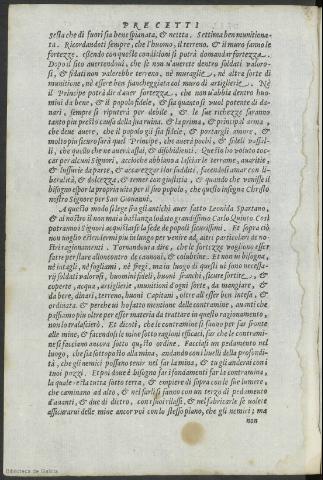 PRECETTI
sessa che di fuori sia bene spianata, & netta. Settima ben munitionata.
Ricordandosi sempre, che l'huomo, il terreno, & il muro fanno le
fortezze. essendo con queste conditioni si potrà domandar fortezza.
Dopo il sito auertendoui, che se non u'auerete dentro soldati valorosi,
& fidati non valerebbe terreno, nè muraglie, nè altra sorte di
munitione, nè esser ben fiancheggiata col muro di artiglierie. Nè
il Principe potrà dir d'auer fortezza, che non n'abbia dentro huomini
da bene, & il popolo fidele, & sia quanto si vuol potente di danari,
sempre si riputerà per debole, & le sue richezze saranno
tanto più presto causa della sua ruina. & la prima, & principal arma,
che deue auere, che il popolo gli sia fidele, & portargli amore, &
molto più sicuro sarà quel Principe, che auerà pochi, & fideli vassalli,
che quello che ne auerà assai, & disobidienti. Questo ho voluto toccar
per alcuni Signori, acciochè abbiano a lasciar le tiranne, auaritie,
& lussurie da parte, & accarezzar i lor sudditi, facendosi amar con liberalità,
& dolcezza, & temer con giustitia, & quando che venisse il
bisogno espor la propria vita per il suo popolo, che questo insegna Christo
nostro Signore per San Giouanni.
A questo modo si legge fra gli antichi auer fatto Leonida Spartano,
& al nostro il non mai a bastanza lodato grandissimo Carlo Quinto. Così
potranno i Signori acquistarsi le sede de popoli sicurissimi. Et sopra ciò
non voglio estendermi più in lungo per venire ad altri particolari de nostri
ragionamenti. Tornando a dire, che le fortezze vogliono esser
fatte per stare all'incontro de cannoni, & colubrine. Et non ui bisogna,
nè intagli, nè fogliami, nè fregi, ma in luogo di quelli ui sono necessarij
soldati valorosi, huomini fideli, buoni fianchi, sicure sortite, &
coperte, acqua, artiglierie, munitioni d'ogni sorte, da mangiare, &
da bere, dinari, terreno, buoni Capitani, oltre all'esser ben intesa, &
ordinata. & perche ui ho fatto mentione delle contramine, auanti che
passiamo più oltre per esser materia da trattare in questo ragionamento,
non lo tralascierò. Et dico ti, che le contramine si fanno per far fronte
alle mine, & facendosi le mine sotto ragioni efficaci, far che le contramine
si facciano ancora sotto questo ordine. Facciasi un pedamento nel
luogo, che sia sottoposto alla mina, andando con i liuelli della profondità,
che gli nemici possano tener nel far la mina, & tu gli anderai con i
tuoi pozzi. Et poi doue è bisogno far i fondamenti far la contramina,
la quale resta tutta sotto terra, & empiere di sopra con le sue lumere,
che caminano ad alto, & nel farli si fanno con un terzo di pedamento
d'auanti, & due di dietro, con i suoi rilassi, & nel fabricarle se volete
assicurarui delle mine ancor voi con lo stesso piano, che gli nemici; ma
non
Biblioteca de Galicia